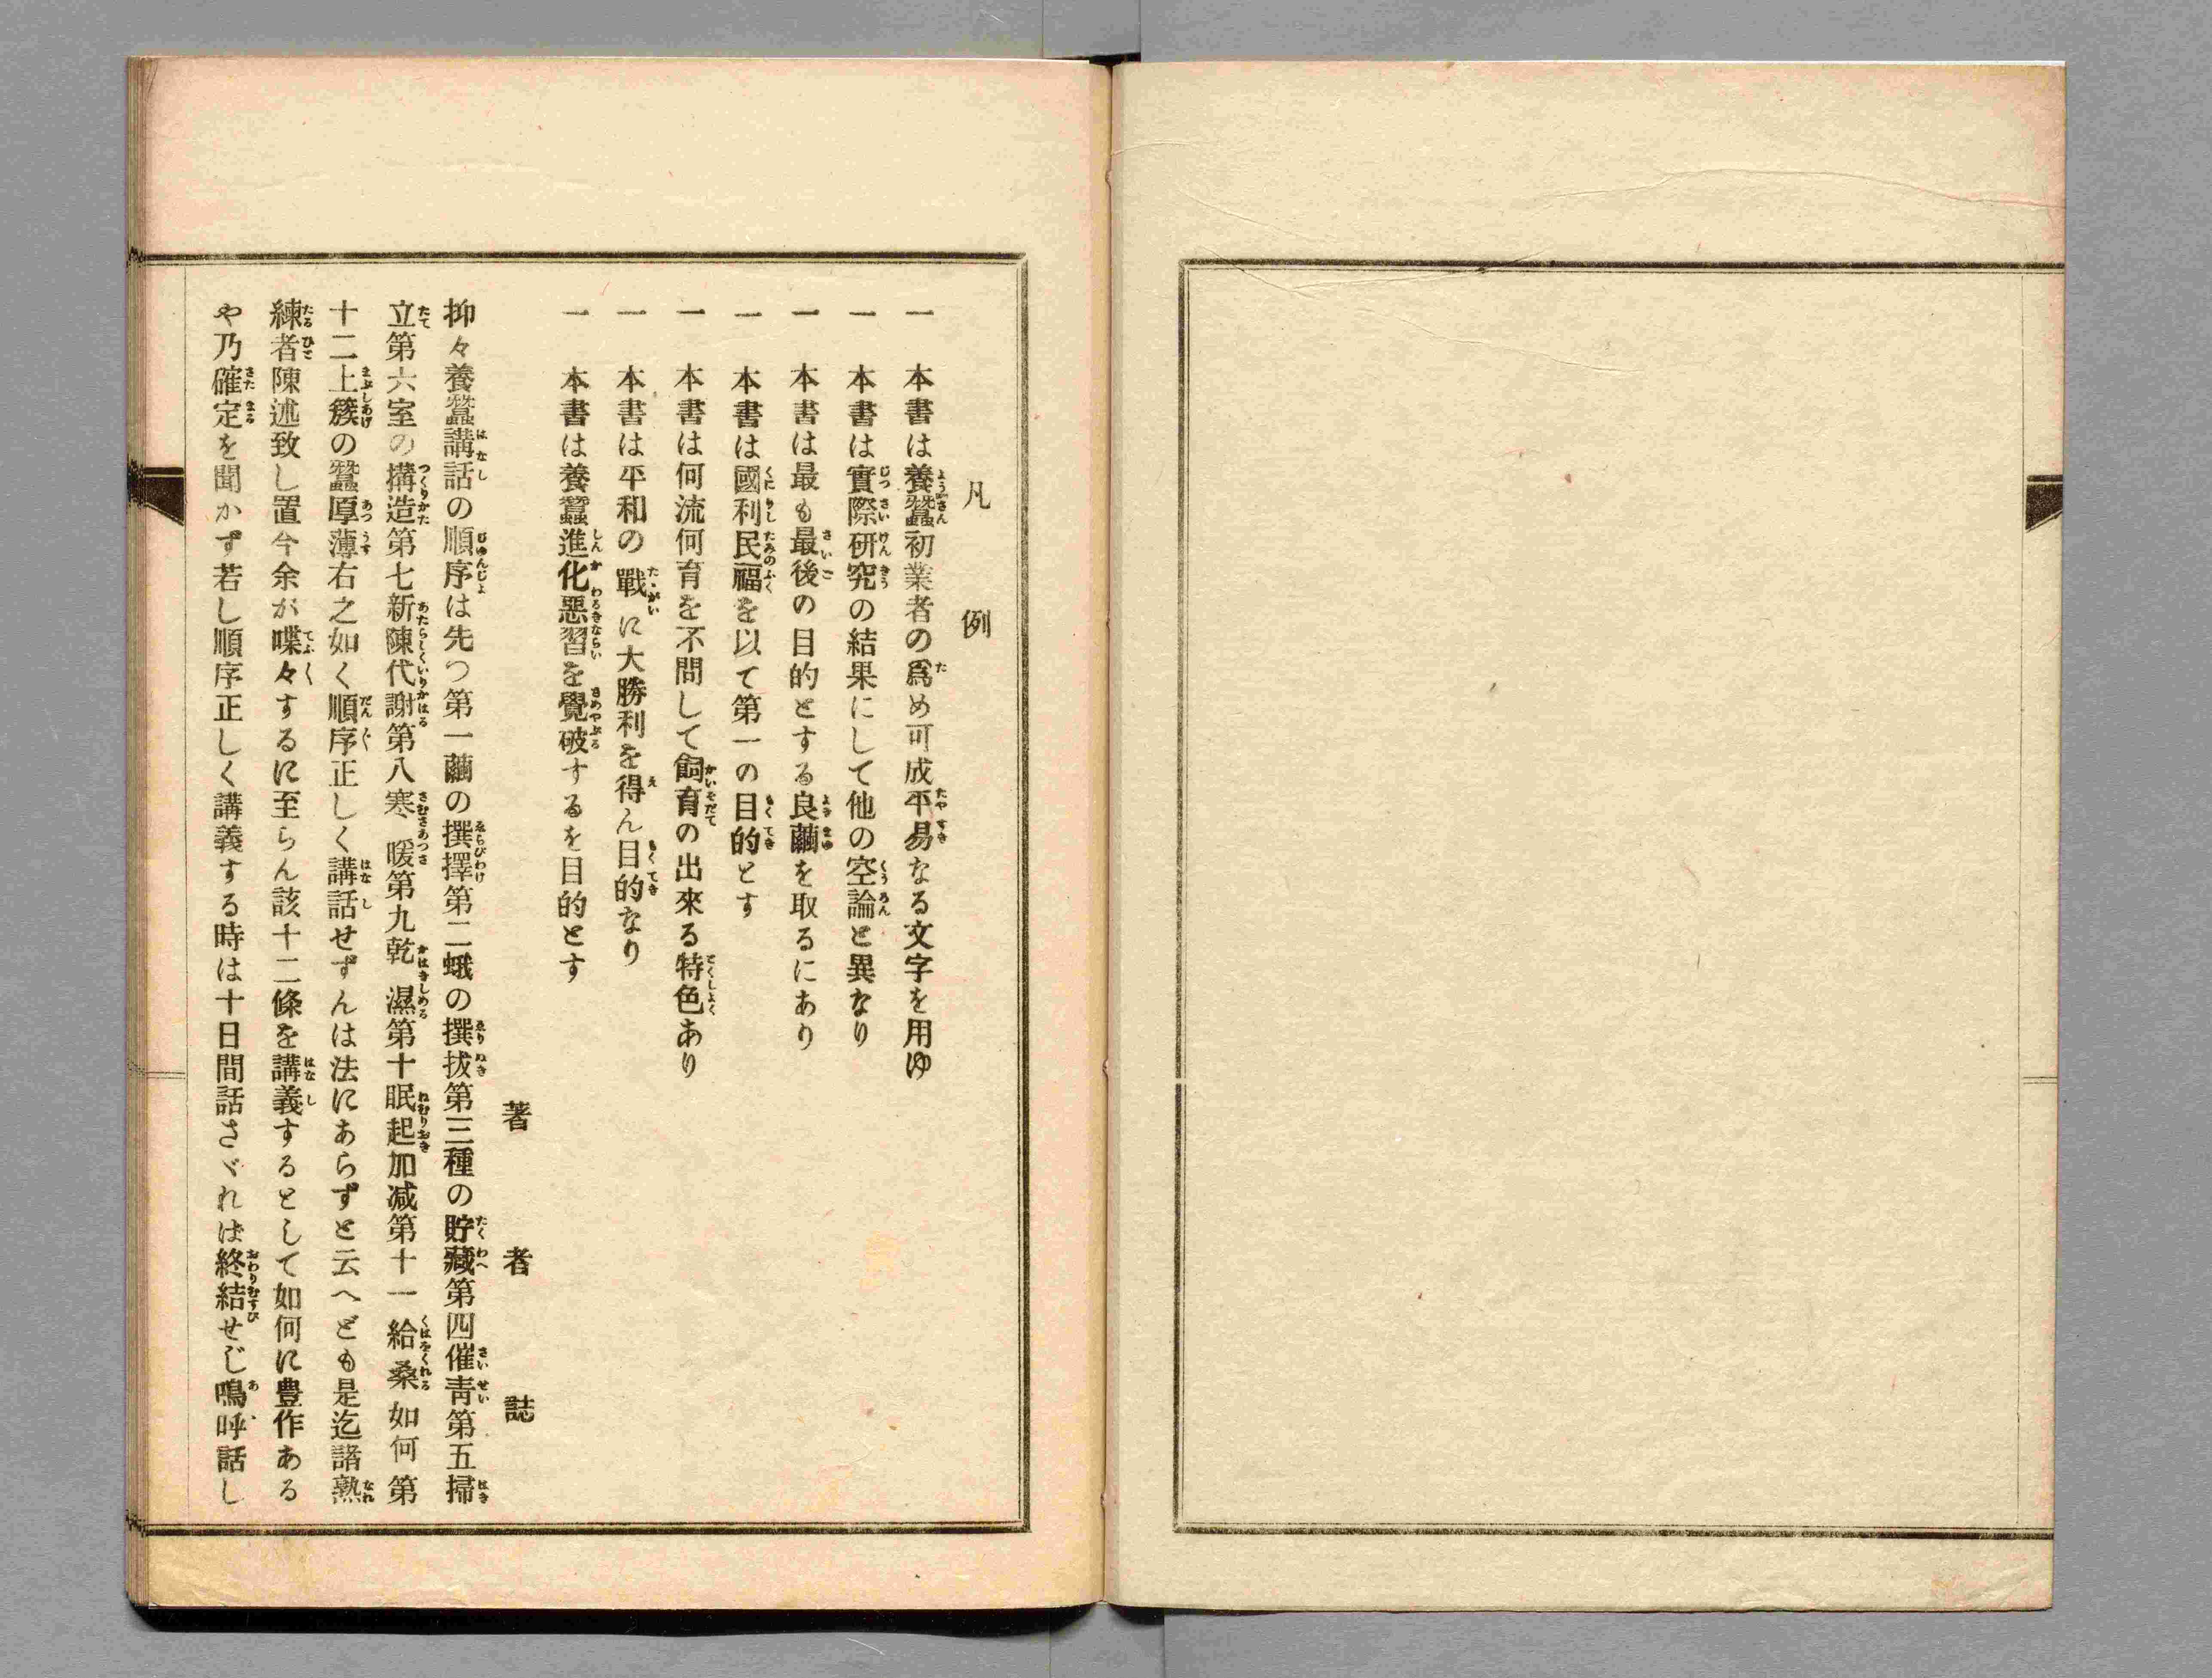 凡例
一 本書は養蠶初業者の爲め可成平易なる文字を用ゆ
一 本書は實際硏究の結果にして他の空論と異なり
一 本書は最も最後の目的とする良繭を取るにあり
一 本書は國利民福を以て第一の目的とす
一 本書は何流何育を不問して飼育の出來る特色あり
一 本書は平和の戰に大勝利を得ん目的なり
一 本書は養蠶進化惡習を覺破するを目的とす
著者誌
抑々養蠶講話の順序は先つ第一繭の撰擇第二蛾の撰拔第三種の貯藏第四催靑第五掃
立第六室の搆造第七新陳代謝第八寒暖第九乾濕第十眠起加減第十一給桑如何第
十二上簇の蠶厚薄右之如く順序正しく講話せずんは法にあらずと云へども是迄諸熟
練者陳述致し置今余が喋々するに至らん該十二條を講義するとして如何に豊作ある
や乃確定を聞かず若し順序正しく講義する時は十日間話さゞれは終結せじ鳴呼話し